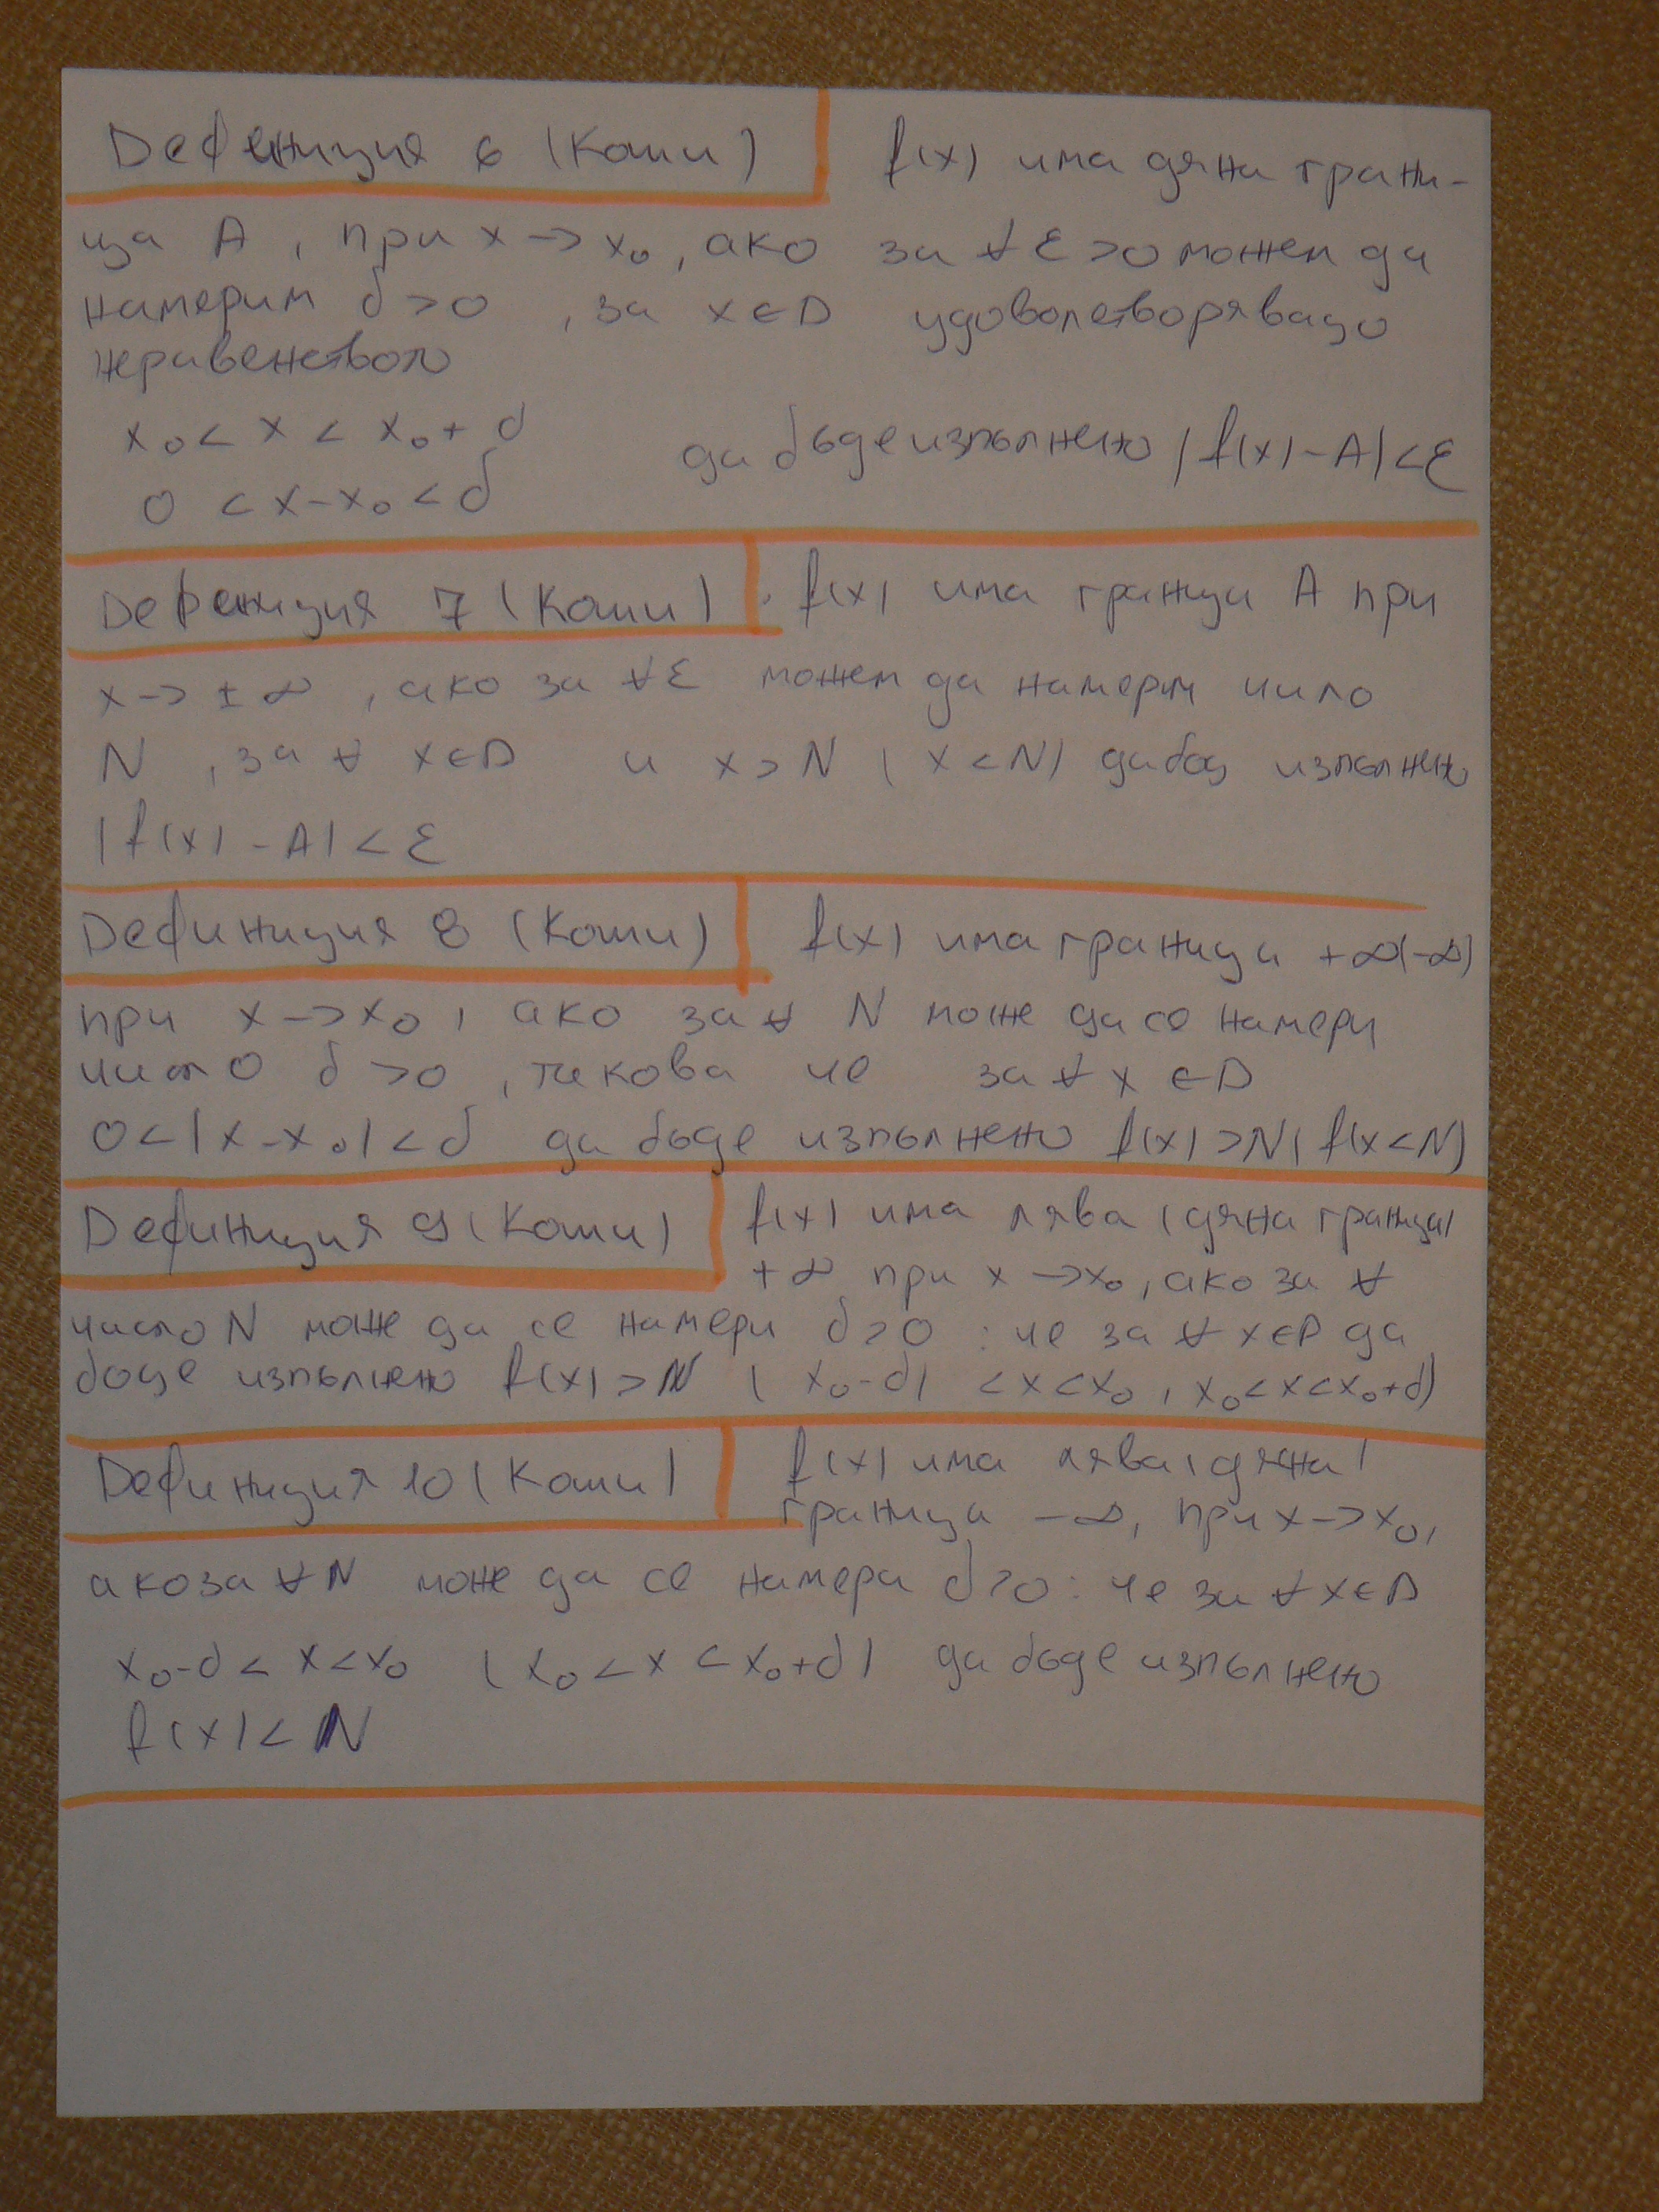 Дефиниция 6 (Коши) f(x) има дясна грани-
ца A, при x -> x₀, ако за ∀ ε >0 можем да
намерим δ >0 , за x∈D удовлетворяващо
неравенството
x₀ < x < x₀ + δ да бъде изпълнено |f(x) - A| < ε
0 < x - x₀ < δ
Дефиниция 7 (Коши) f(x) има граница A при
x -> ± ∞ , ако за ∀ε можем да намерим число
N , за ∀ x∈D и x > N ( x < N) да бъд изпълнено
|f(x) - A| < ε
Дефиниция 8 (Коши) f(x) има граница +∞(-∞)
при x -> x₀ , ако за ∀ N може да се намери
число δ >0 , такова че за ∀ x ∈ D
0 < |x - x₀| < δ да бъде изпълнено f(x) > N ( f(x < N)
Дефиниция 9 (Коши) f(x) има лява (дясна граница)
+ ∞ при x -> x₀, ако за ∀
число N може да се намери δ > 0 : че за ∀ x∈D да
бъде изпълнено f(x) > N ( x₀ - δ) < x < x₀ , x₀ < x < x₀ + δ)
Дефиниция 10 (Коши) f(x) има лява (дясна)
граница -∞, при x -> x₀,
ако за ∀ N може да се намери δ > 0 : че за ∀ x∈D
x₀ - δ < x < x₀ (x₀ < x < x₀ + δ) да бъде изпълнено
f(x) < N